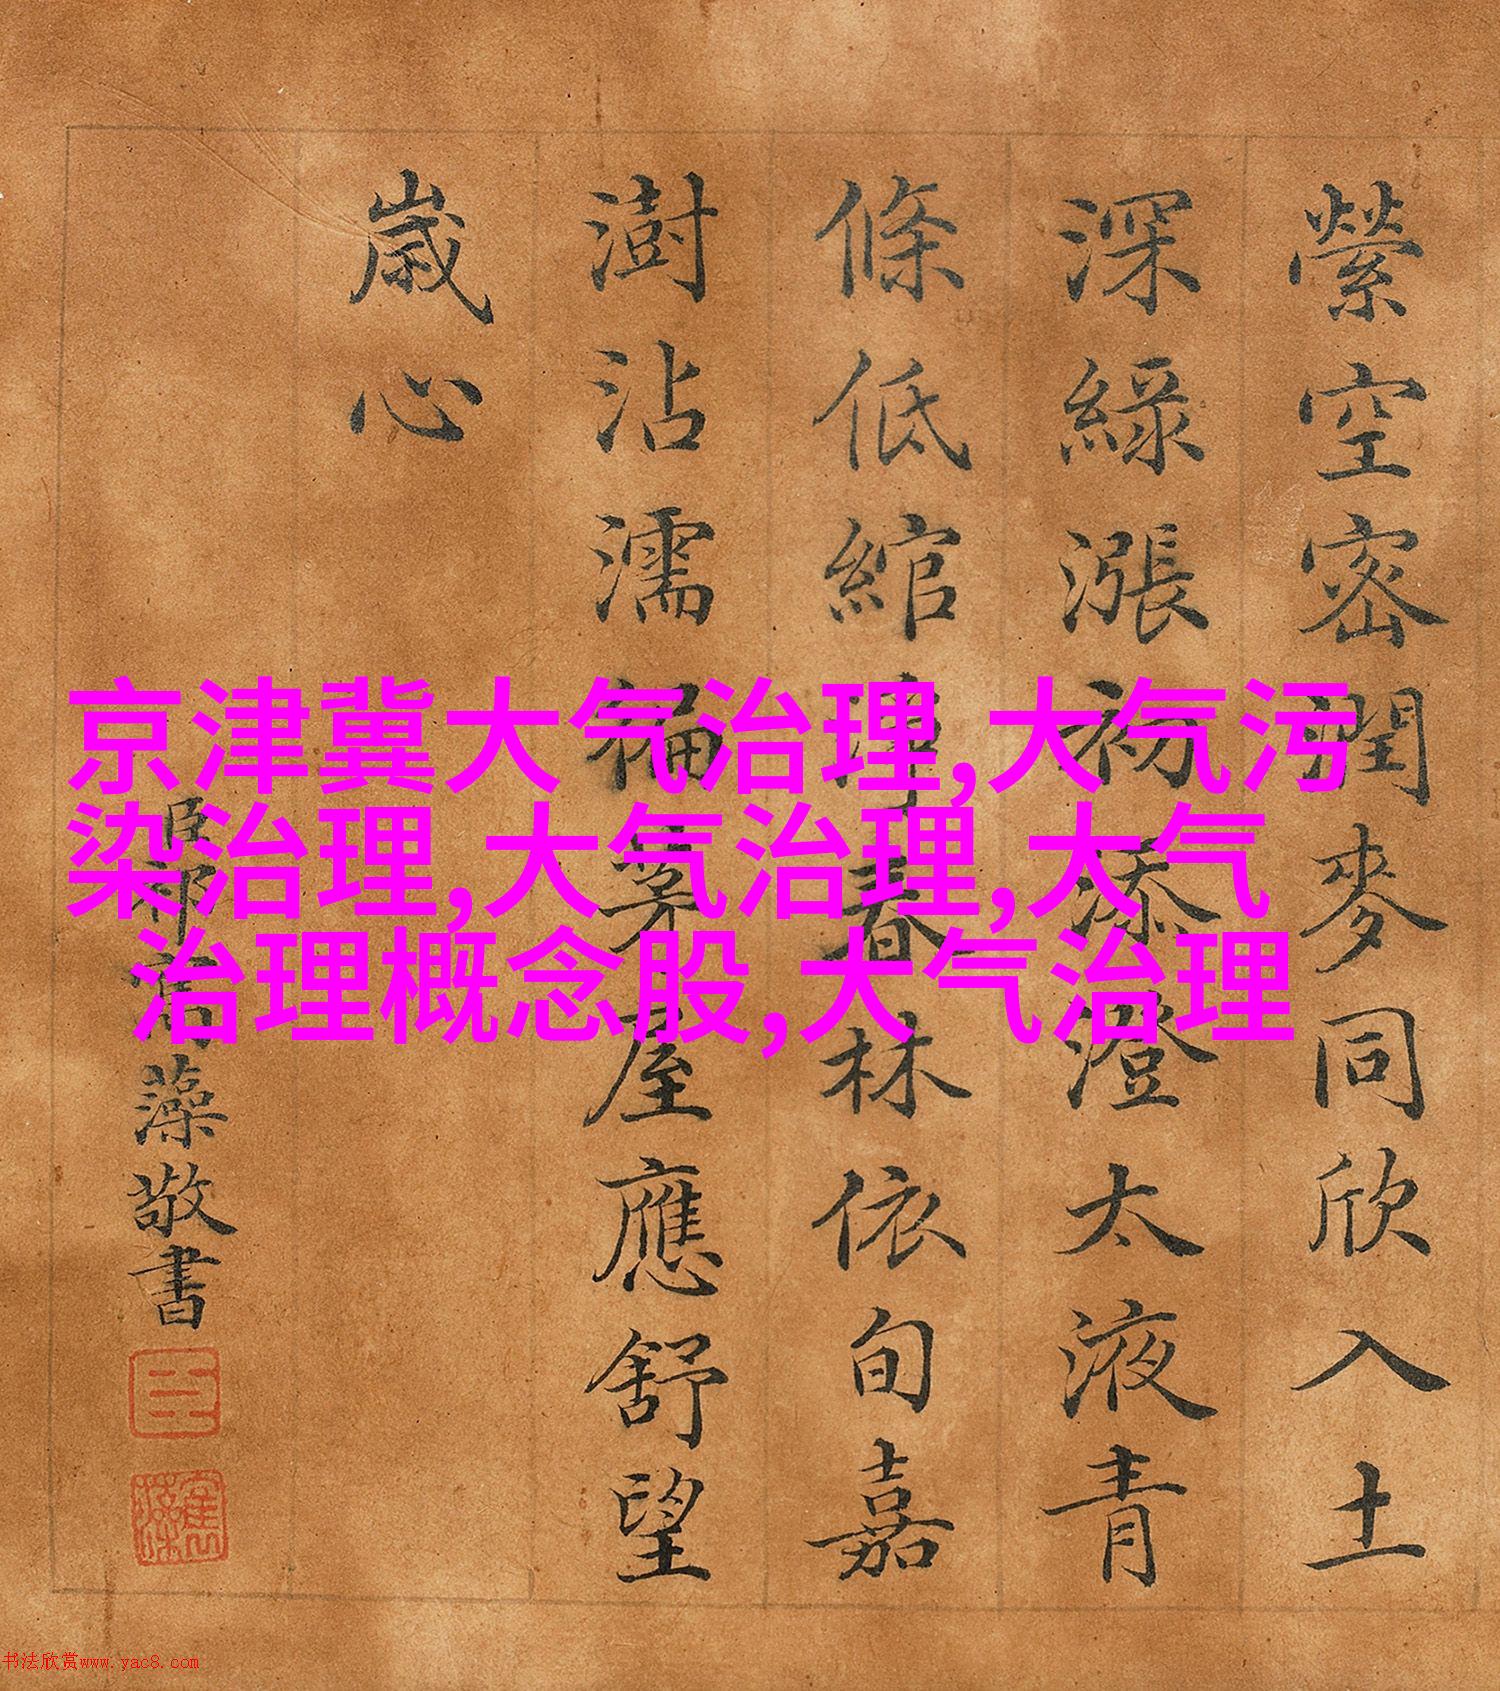 縈空密潤麥同欣入土
深綠漲初添澄太液青
條低綰
春林依旬嘉
澍沾濡
茅屋應舒望
歲心
臣
藻敬書
京津冀大气治理,大气污
染治理,大气治理,大气
治理概念股,大气治理
书法欣赏www.yac8.com